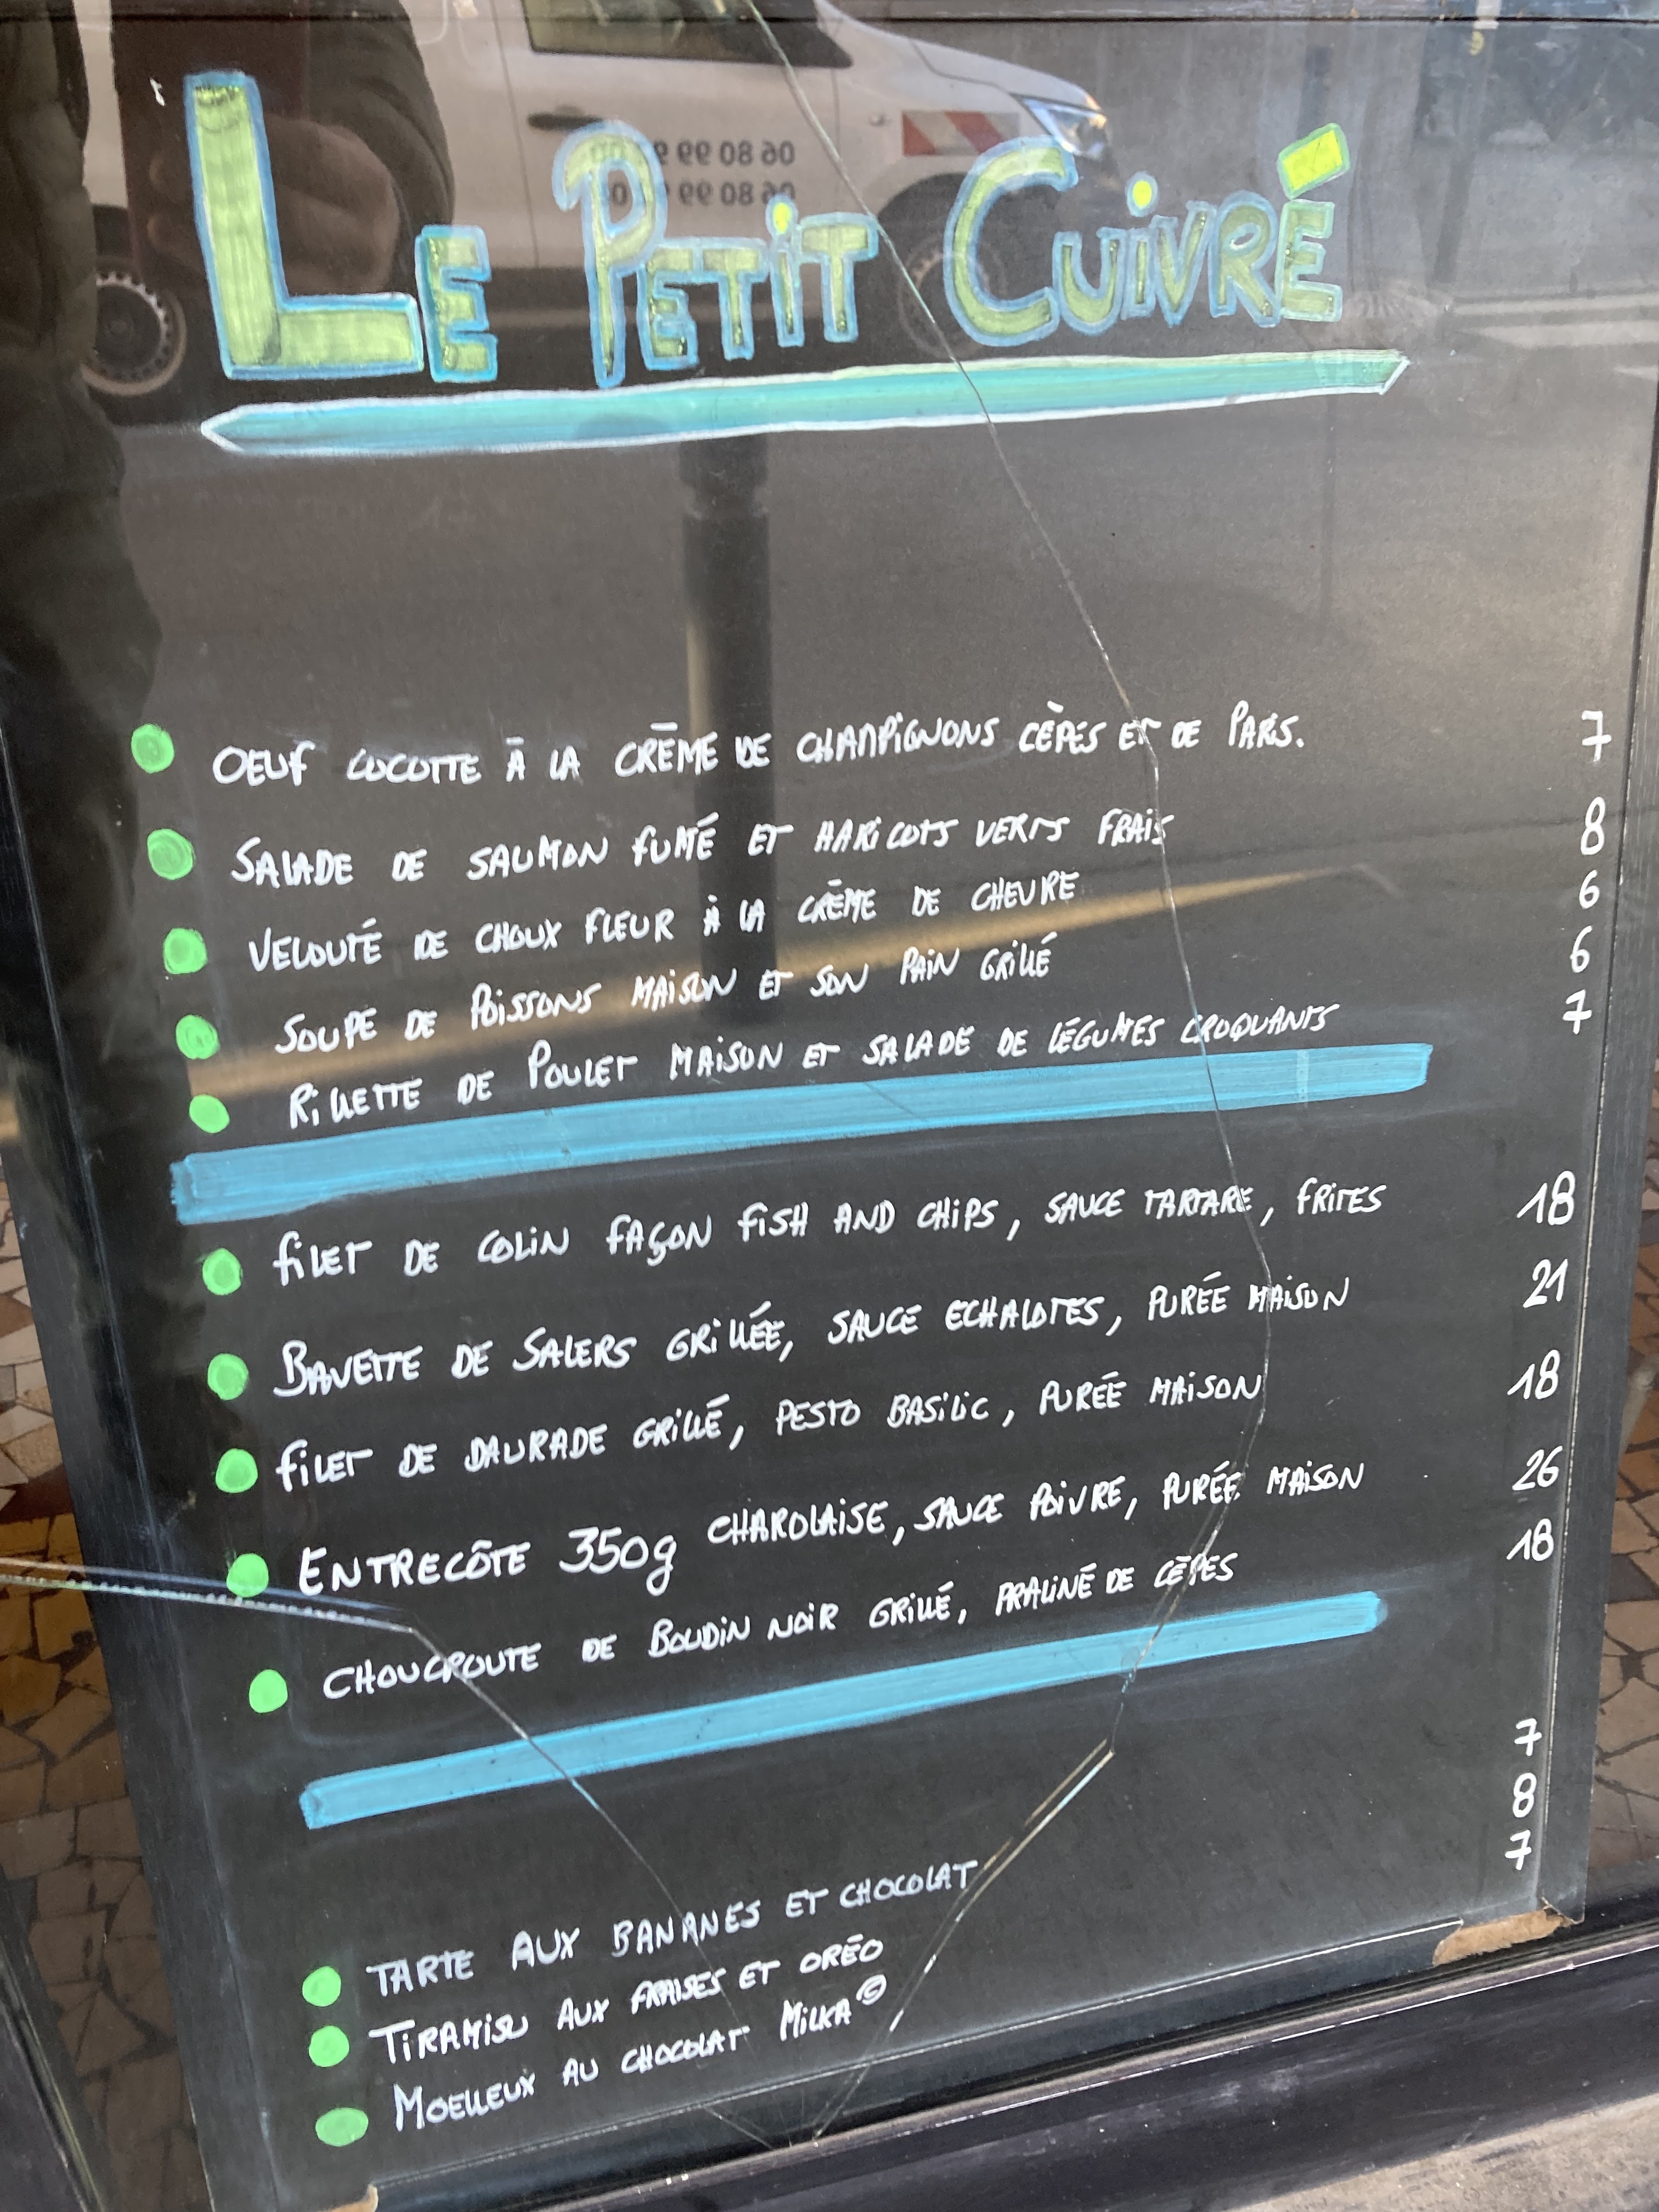 LE PETIT CUIVRÉ
OEUF COCOTTE À LA CRÈME DE CHAMPIGNONS CÈPES ET DE PARIS. 7
SALADE DE SAUMON FUMÉ ET HARICOTS VERTS FRAIS 8
VELOUTÉ DE CHOUX FLEUR À LA CRÈME DE CHEVRE 6
SOUPE DE POISSONS MAISON ET SON PAIN GRILLÉ 6
RILLETTE DE POULET MAISON ET SALADE DE LÉGUMES CROQUANTS 7
FILET DE COLIN FAÇON FISH AND CHIPS, SAUCE TARTARE, FRITES 18
BAVETTE DE SALERS GRILLÉE, SAUCE ECHALOTES, PURÉE MAISON 21
FILET DE DAURADE GRILLÉ, PESTO BASILIC, PURÉE MAISON 18
ENTRECÔTE 350g CHAROLAISE, SAUCE POIVRE, PURÉE MAISON 26
CHOUCROUTE DE BOUDIN NOIR GRILLÉ, PRALINÉ DE CÈPES 18
TARTE AUX BANANES ET CHOCOLAT 7
TIRAMISU AUX FRAISES ET ORÉO 8
MOELLEUX AU CHOCOLAT MILKA © 7